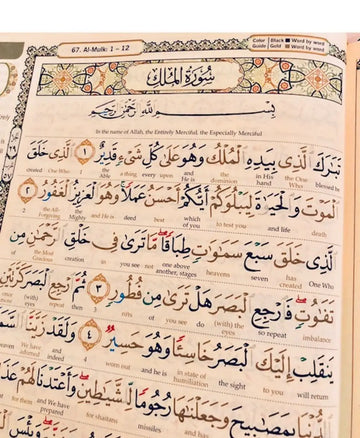 67. Al-Mulk: 1 – 12
Color Guide Black Word by word Gold Word by word
سُورَةُ الْمُلْكِ
بِسْمِ اللَّهِ الرَّحْمَٰنِ الرَّحِيمِ
In the name of Allah, the Entirely Merciful, the Especially Merciful
تَبَارَكَ الَّذِي بِيَدِهِ الْمُلْكُ وَهُوَ عَلَىٰ كُلِّ شَيْءٍ قَدِيرٌ ١ الَّذِي خَلَقَ
created One Who 1 the Able a thing every upon and He is the dominion in His hand the One Who blessed is
الْمَوْتَ وَالْحَيَاةَ لِيَبْلُوَكُمْ أَيُّكُمْ أَحْسَنُ عَمَلًا وَهُوَ الْعَزِيزُ الْغَفُورُ ٢
2 the All-Forgiving the Mighty and He is deed best which of you to test you and life death
الَّذِي خَلَقَ سَبْعَ سَمَاوَاتٍ طِبَاقًا مَا تَرَىٰ فِي خَلْقِ الرَّحْمَٰنِ مِن
the Most Gracious creation in you see not one above another, stages heavens seven has created One Who
تَفَاوُتٍ فَارْجِعِ الْبَصَرَ هَلْ تَرَىٰ مِن فُطُورٍ ٣ ثُمَّ ارْجِعِ الْبَصَرَ كَرَّتَيْنِ
(with) eyes repeat then 3 rifts of you see do (with) the eyes so repeat imbalance
يَنقَلِبْ إِلَيْكَ الْبَصَرُ خَاسِئًا وَهُوَ حَسِيرٌ ٤ وَلَقَدْ زَيَّنَّا
We have adorned and indeed 4 worn out and it is in state of humiliation the sight to you will return
الدُّنْيَا بِمَصَابِيحَ وَجَعَلْنَاهَا رُجُومًا لِّلشَّيَاطِينِ وَأَعْتَدْنَا لَهُمْ
for them and We have prepared for shaitans missiles and has